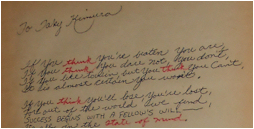 To Taky Kimura
If you think you're beaten you are,
If you think you dare not, you don't,
If you like to win but you think you can't,
It is almost certain you won't.
If you think you'll lose, you're lost,
For out of the world we find,
SUCCESS BEGINS WITH A FELLOW'S WILL
It's all in the state of mind